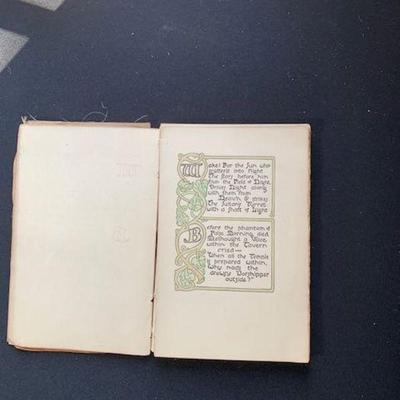 Wake! For the Sun who
scatter'd into flight
The Stars before him
from the Field of Night,
Drives Night along
with them from
Heav'n, & strikes
The Sultan's Turret
with a Shaft of Light
Before the phantom of
False Morning died,
Methought a Voice
within the Tavern
cried—
"When all the Temple
is prepared within,
Why nods the
drowsy Worshipper
outside?"